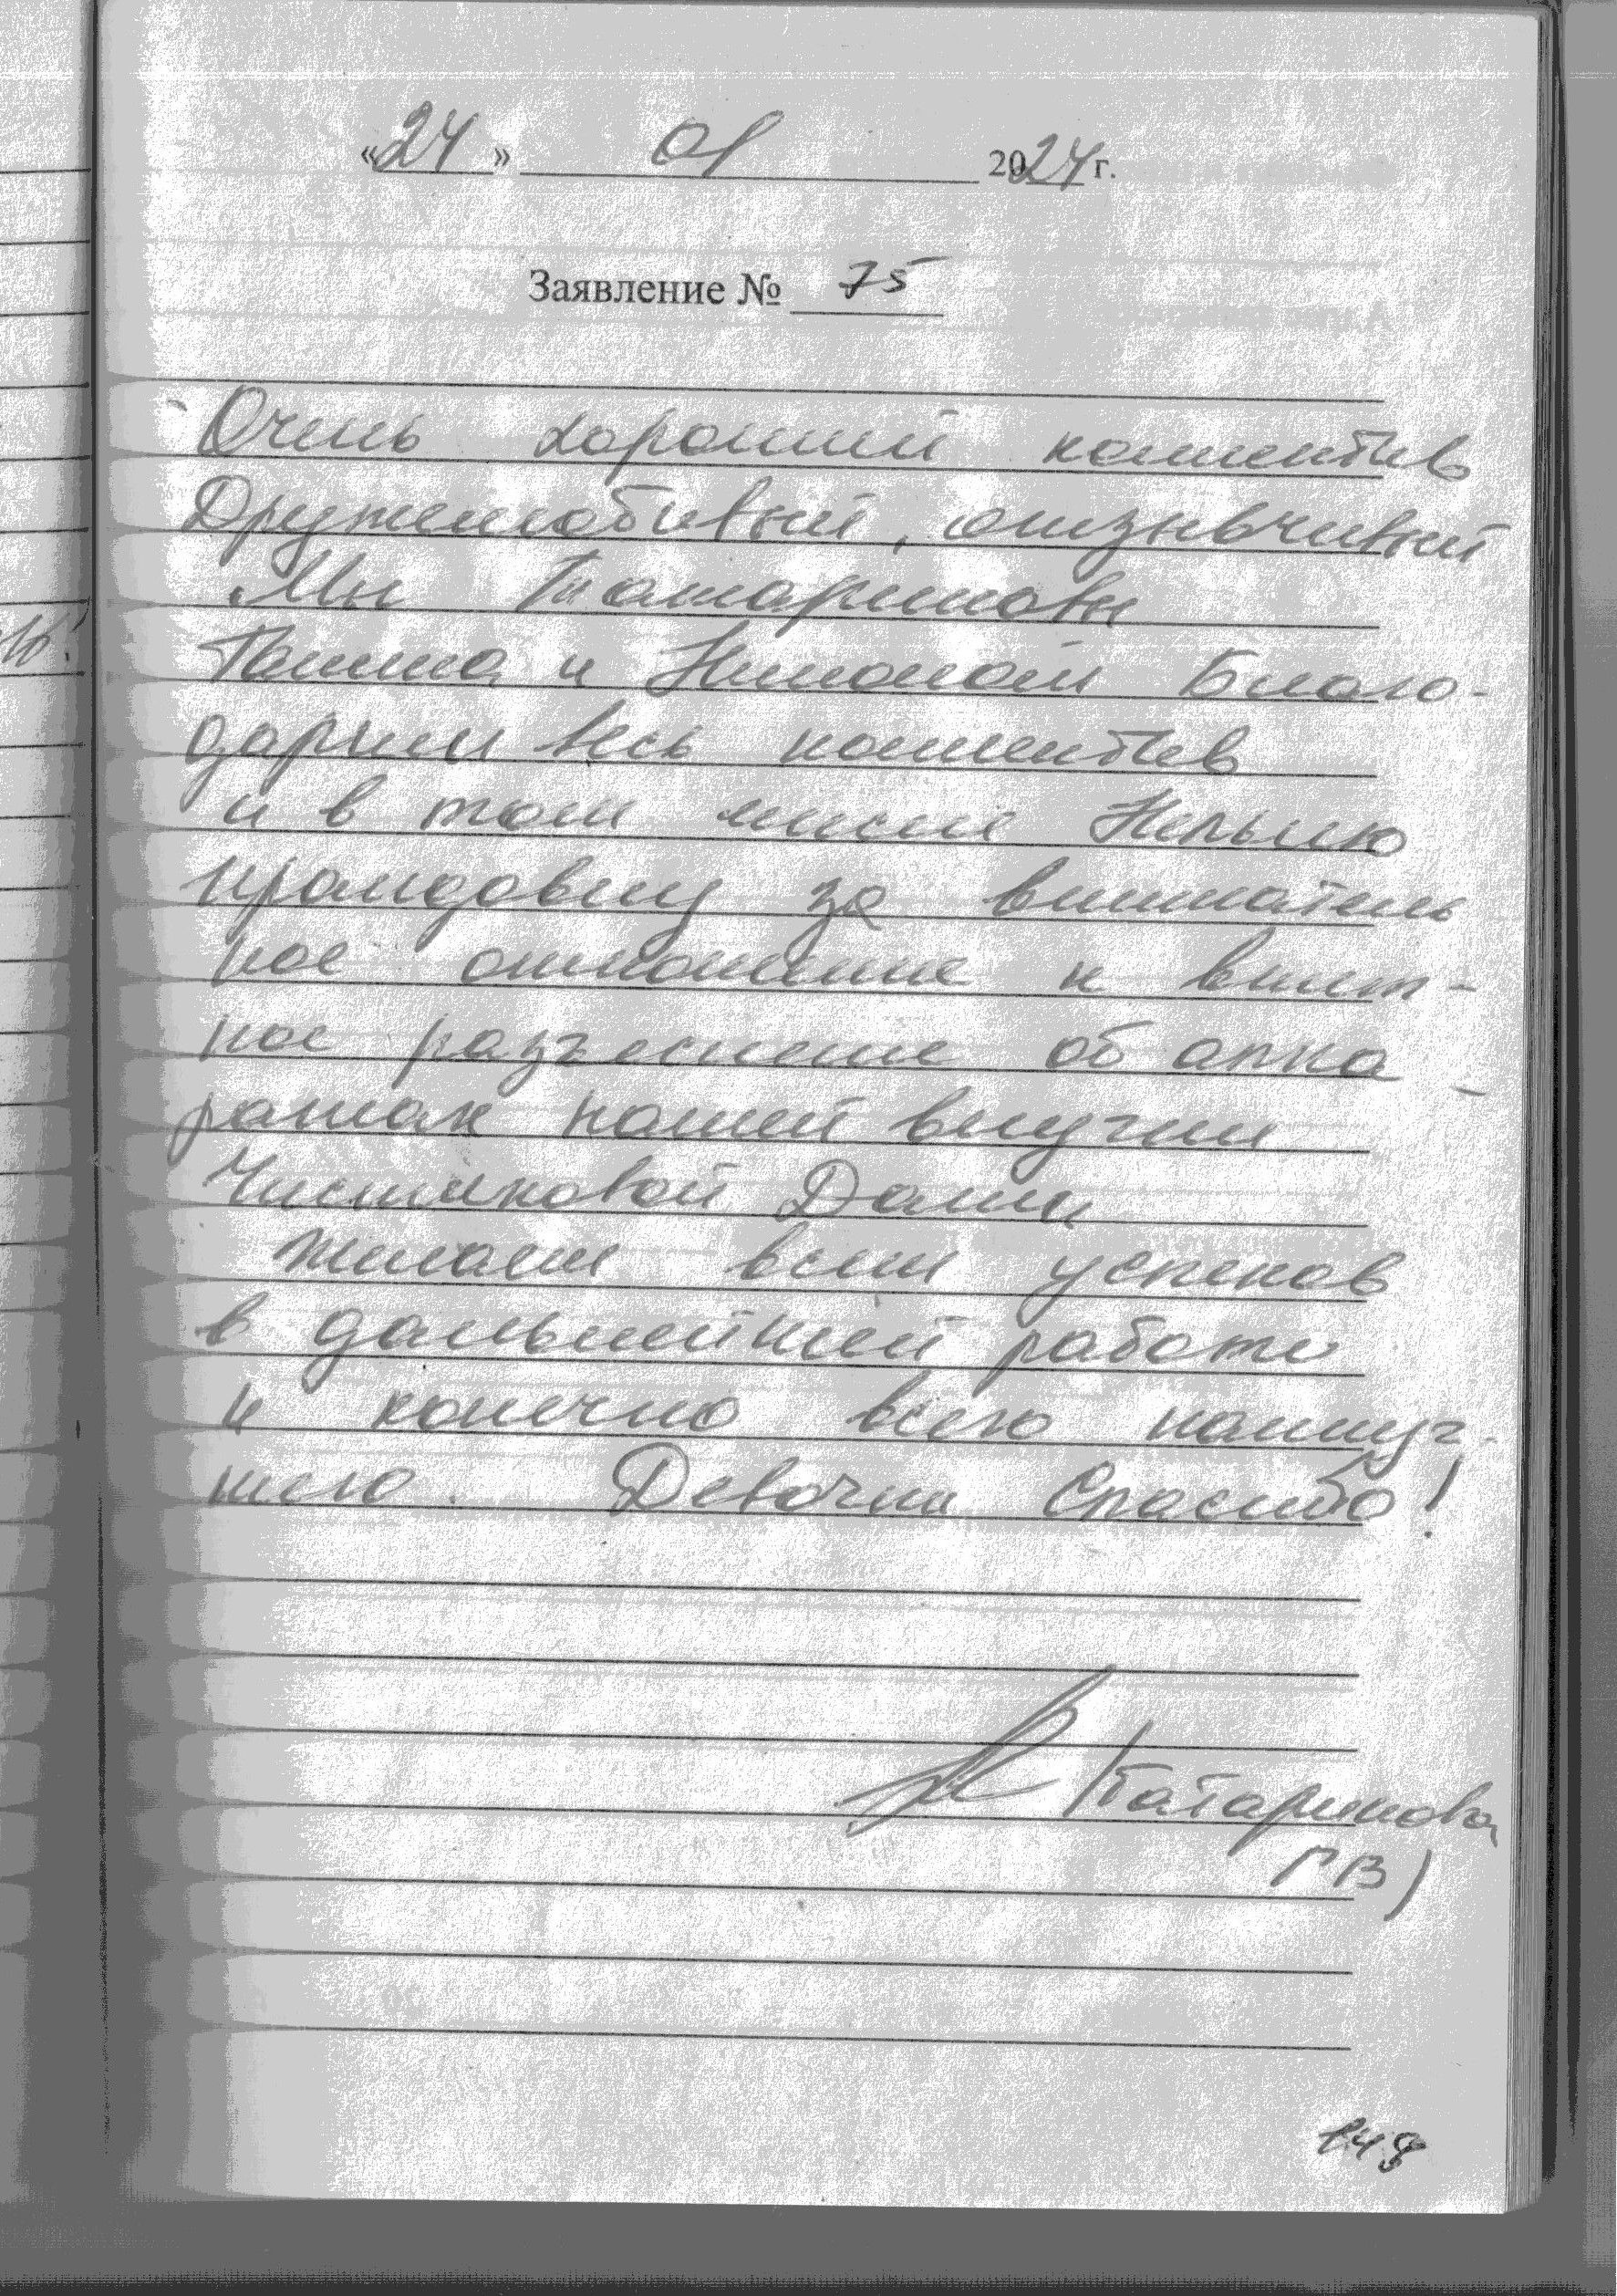 «24» 01 2024 г.
Заявление № 75
Очень хороший коллектив
Дружелюбивый, отзывчивый
Мы Татариновы
Галина и Николай Благо-
дарим весь коллектив
и в том числе Нелью
за вниматель
ное отношение и внят-
ное разъеснение об аппа-
ратах нашей внучки
Чистяковой Даши
желаем всем успехов
в дальнейшей работе
и конечно всего наилуч-
шего. Девочки Спасибо!
(Татаринова
ГВ)
149